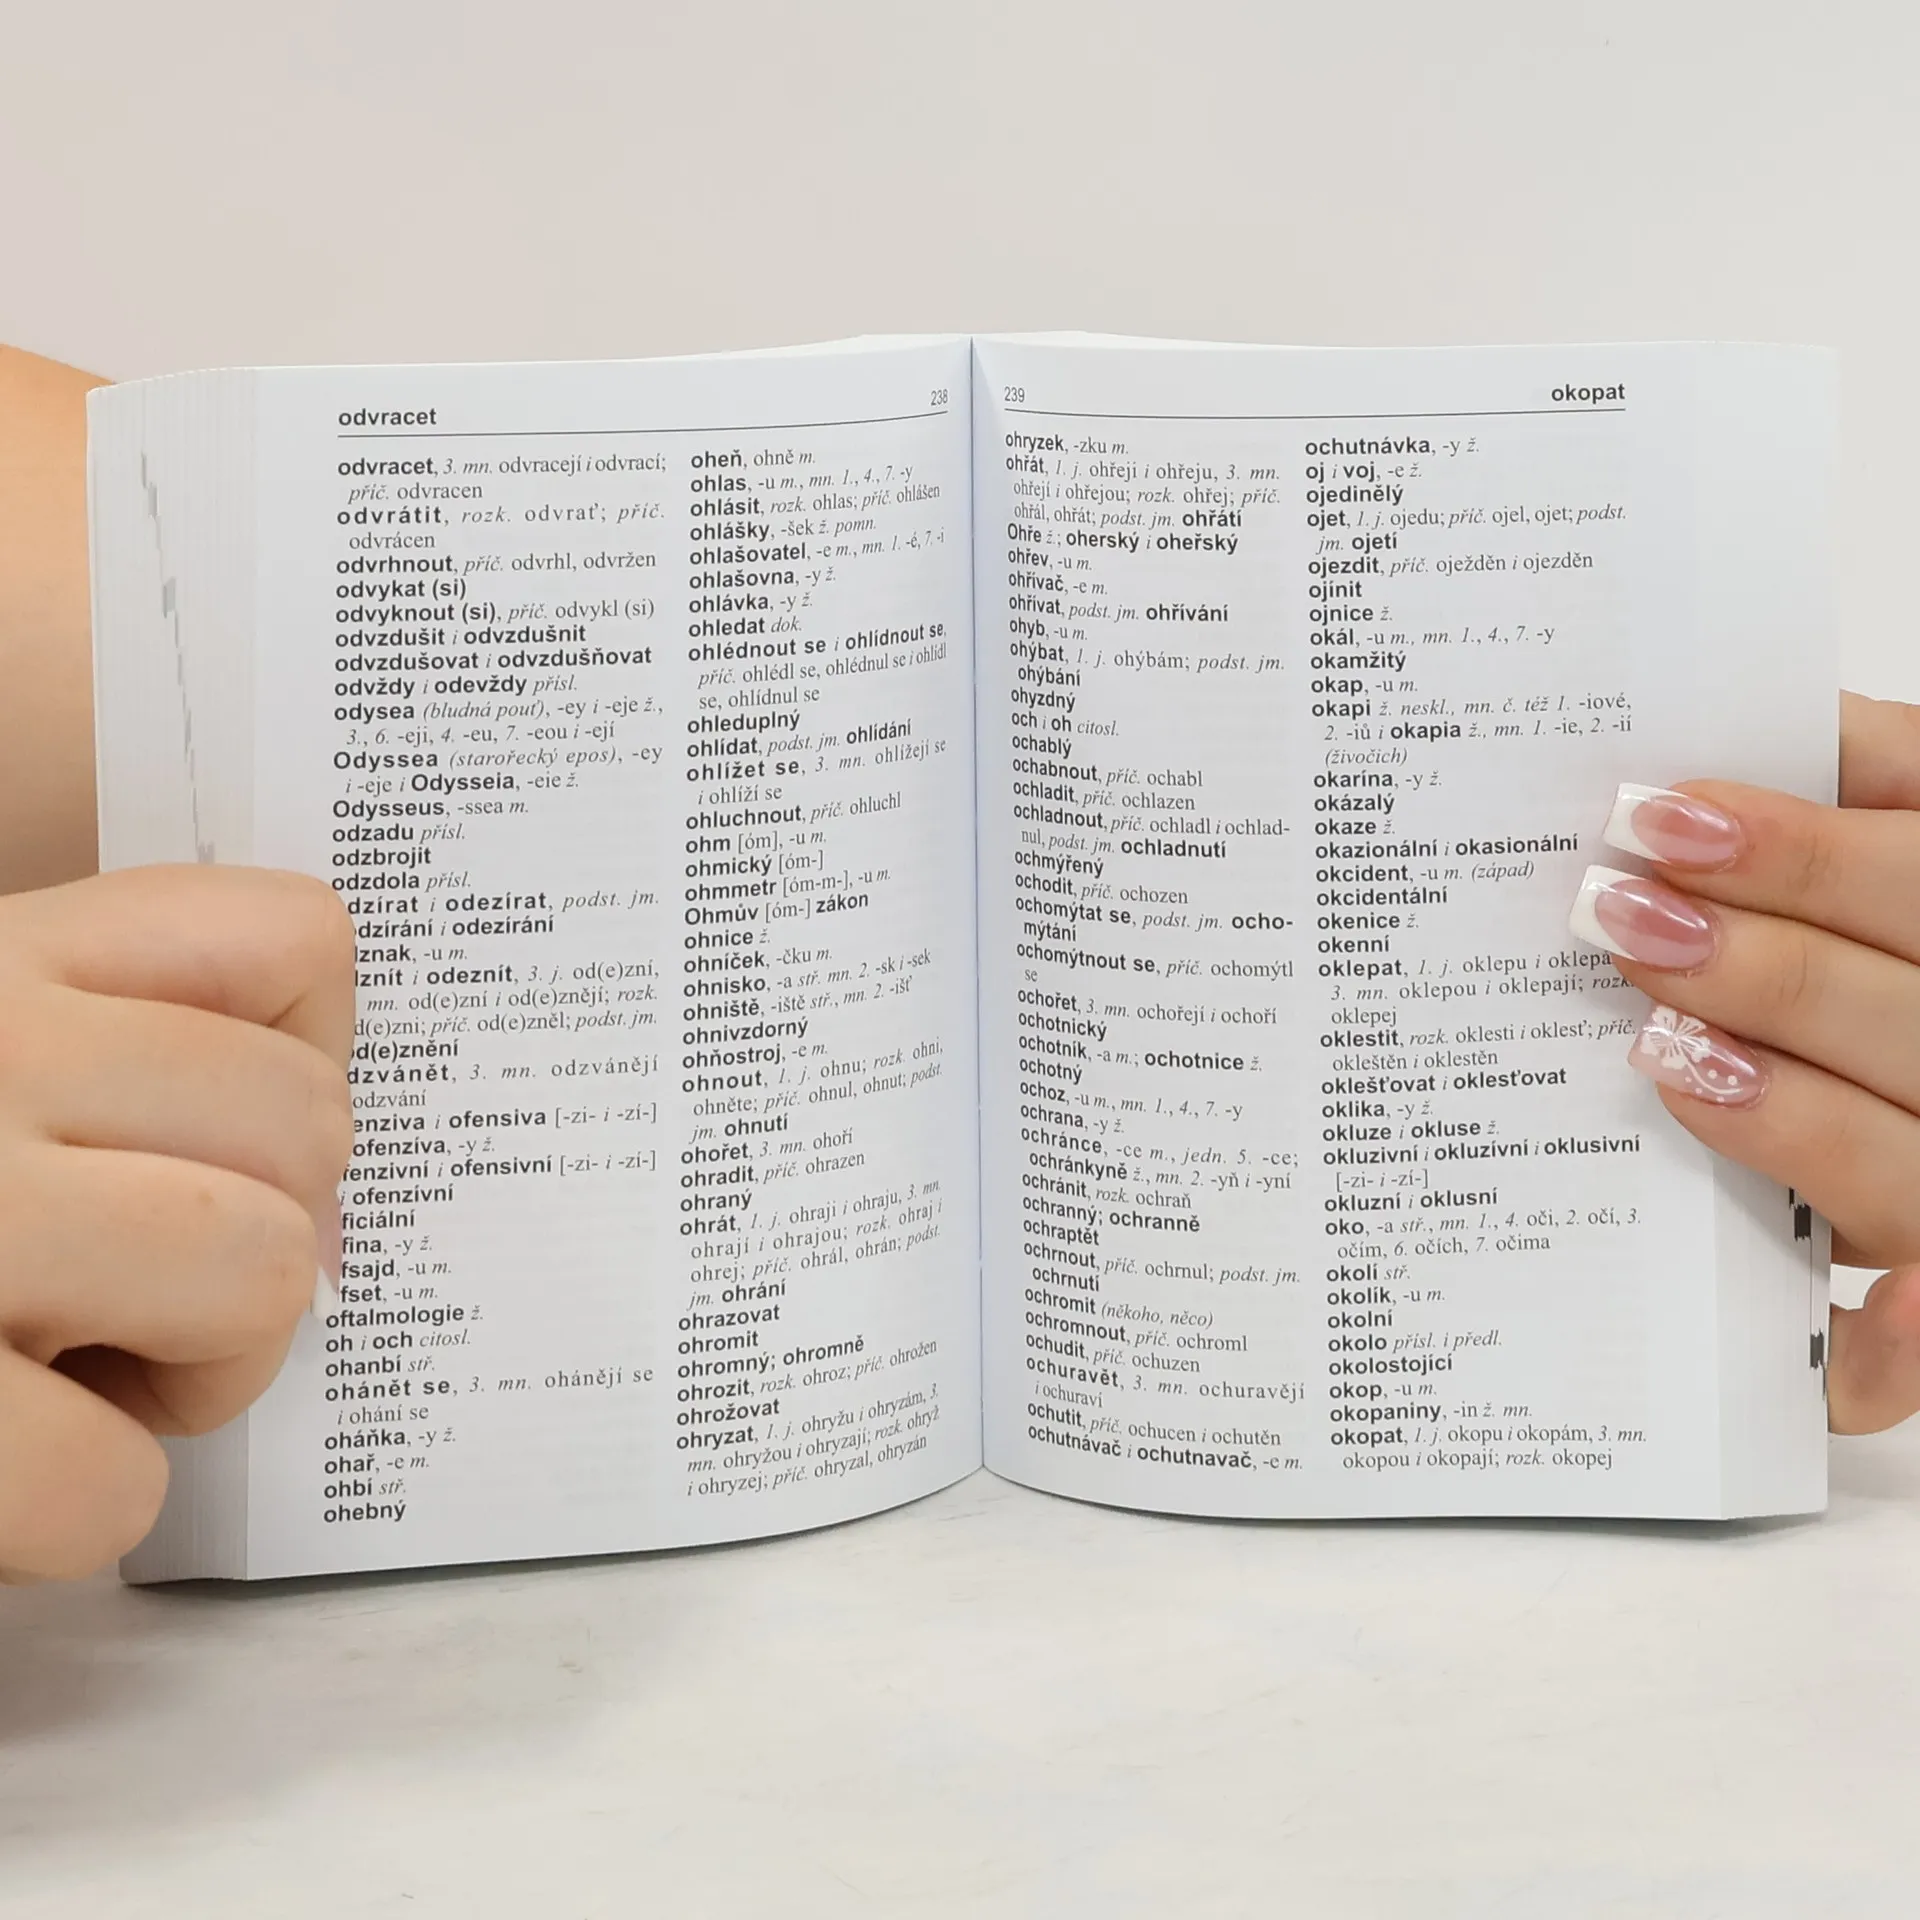 odvracet
238
odvracet, 3. mn. odvracejí i odvrací;
příč. odvracen
odvrátit, rozk. odvrať; příč.
odvrácen
odvrhnout, příč. odvrhl, odvržen
odvykat (si)
odvyknout (si), příč. odvykl (si)
odvzdušit i odvzdušnit
odvzdušovat i odvzdušňovat
odvždy i odevždy přísl.
odysea (bludná pouť), -ey i -eje ž.,
3., 6. -eji, 4. -eu, 7. -eou i -ejí
Odyssea (starořecký epos), -ey
i -eje i Odysseia, -eie ž.
Odysseus, -ssea m.
odzadu přísl.
odzbrojit
odzdola přísl.
dzírat i odezírat, podst. jm.
dzírání i odezírání
znak, -u m.
znít i odeznít, 3. j. od(e)zní,
mn. od(e)zní i od(e)znějí; rozk.
d(e)zni; příč. od(e)zněl; podst. jm.
d(e)znění
dzvánět, 3. mn. odzvánějí
odzvání
enziva i ofensiva [-zi- i -zí-]
ofenzíva, -y ž.
fenzivní i ofensivní [-zi- i -zí-]
i ofenzívní
ficiální
fina, -y ž.
fsajd, -u m.
fset, -u m.
oftalmologie ž.
oh i och citosl.
ohanbí stř.
ohánět se, 3. mn. ohánějí se
i ohání se
oháňka, -y ž.
ohař, -e m.
ohbí stř.
ohebný
oheň, ohně m.
ohlas, -u m., mn. 1., 4., 7. -y
ohlásit, rozk. ohlas; příč. ohlášen
ohlášky, -šek ž. pomn.
ohlašovatel, -e m., mn. 1. -é, 7. -i
ohlašovna, -y ž.
ohlávka, -y ž.
ohledat dok.
ohlédnout se i ohlídnout se,
příč. ohlédl se, ohlédnul se i ohlídl
se, ohlídnul se
ohleduplný
ohlídat, podst. jm. ohlídání
ohlížet se, 3. mn. ohlížejí se
i ohlíží se
ohluchnout, příč. ohluchl
ohm [óm], -u m.
ohmický [óm-]
ohmmetr [óm-m-], -u m.
Ohmův [óm-] zákon
ohnice ž.
ohníček, -čku m.
ohnisko, -a stř. mn. 2. -sk i -sek
ohniště, -iště stř., mn. 2. -išť
ohnivzdorný
ohňostroj, -e m.
ohnout, 1. j. ohnu; rozk. ohni,
ohněte; příč. ohnul, ohnut; podst.
jm. ohnutí
ohořet, 3. mn. ohoří
ohradit, příč. ohrazen
ohraný
ohrát, 1. j. ohraji i ohraju, 3. mn.
ohrají i ohrajou; rozk. ohraj i
ohrej; příč. ohrál, ohrán; podst.
jm. ohrání
ohrazovat
ohromit
ohromný; ohromně
ohrozit, rozk. ohroz; příč. ohrožen
ohrožovat
ohryzat, 1. j. ohryžu i ohryzám, 3.
mn. ohryžou i ohryzají; rozk. ohryž
i ohryzej; příč. ohryzal, ohryzán
239
okopat
ohryzek, -zku m.
ohřát, 1. j. ohřeji i ohřeju, 3. mn.
ohřejí i ohřejou; rozk. ohřej; příč.
ohřál, ohřát; podst. jm. ohřátí
Ohře ž.; oherský i oheřský
ohřev, -u m.
ohřívač, -e m.
ohřívat, podst. jm. ohřívání
ohyb, -u m.
ohýbat, 1. j. ohýbám; podst. jm.
ohýbání
ohyzdný
och i oh citosl.
ochablý
ochabnout, příč. ochabl
ochladit, příč. ochlazen
ochladnout, příč. ochladl i ochlad-
nul, podst. jm. ochladnutí
ochmýřený
ochodit, příč. ochozen
ochomýtat se, podst. jm. ocho-
mýtání
ochomýtnout se, příč. ochomýtl
se
ochořet, 3. mn. ochořejí i ochoří
ochotnický
ochotník, -a m.; ochotnice ž.
ochotný
ochoz, -u m., mn. 1., 4., 7. -y
ochrana, -y ž.
ochránce, -ce m., jedn. 5. -ce;
ochránkyně ž., mn. 2. -yň i -yní
ochránit, rozk. ochraň
ochranný; ochranně
ochraptět
ochrnout, příč. ochrnul; podst. jm.
ochrnutí
ochromit (někoho, něco)
ochromnout, příč. ochroml
ochudit, příč. ochuzen
ochuravět, 3. mn. ochuravějí
i ochuraví
ochutit, příč. ochucen i ochutěn
ochutnávač i ochutnavač, -e m.
ochutnávka, -y ž.
oj i voj, -e ž.
ojedinělý
ojet, 1. j. ojedu; příč. ojel, ojet; podst.
jm. ojetí
ojezdit, příč. oježděn i ojezděn
ojínit
ojnice ž.
okál, -u m., mn. 1., 4., 7. -y
okamžitý
okap, -u m.
okapi ž. neskl., mn. č. též 1. -iové,
2. -iů i okapia ž., mn. 1. -ie, 2. -ií
(živočich)
okarína, -y ž.
okázalý
okaze ž.
okazionální i okasionální
okcident, -u m. (západ)
okcidentální
okenice ž.
okenní
oklepat, 1. j. oklepu i oklepá
3. mn. oklepou i oklepají; rozk.
oklepej
oklestit, rozk. oklesti i oklesť; příč.
okleštěn i oklestěn
oklešťovat i oklesťovat
oklika, -y ž.
okluze i okluse ž.
okluzivní i okluzívní i oklusivní
[-zi- i -zí-]
okluzní i oklusní
oko, -a stř., mn. 1., 4. oči, 2. očí, 3.
očím, 6. očích, 7. očima
okolí stř.
okolík, -u m.
okolní
okolo přísl. i předl.
okolostojící
okop, -u m.
okopaniny, -in ž. mn.
okopat, 1. j. okopu i okopám, 3. mn.
okopou i okopají; rozk. okopej